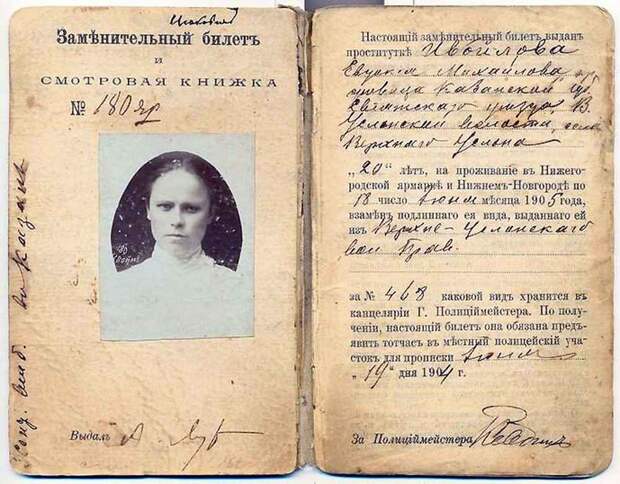 Замѣнительный билетъ
и
СМОТРОВАЯ КНИЖКА
№ 180 яр
Выдалъ
Настоящій замѣнительный билетъ выданъ
проституткѣ Ивойлова
Евдокія Михайлова, кр.
Казанской губ.
уезда, В.
Услонской волости, села
Верхняго Услона
„20" лѣтъ, на проживаніе въ Нижего-
родской ярмаркѣ и Нижнемъ-Новгородѣ по
18 число Іюня мѣсяца 1905 года,
взамѣнъ подлиннаго ея вида, выданнаго ей
изъ Верхне-Услонскаго
вол. Прав.
за № 468 каковой видъ хранится въ
канцеляріи Г. Полиціймейстера. По полу-
ченіи, настоящій билетъ она обязана предъ-
явить тотчасъ въ мѣстный полицейскій уча-
стокъ для прописки Іюня
„19" дня 1904 г.
За Полиціймейстера